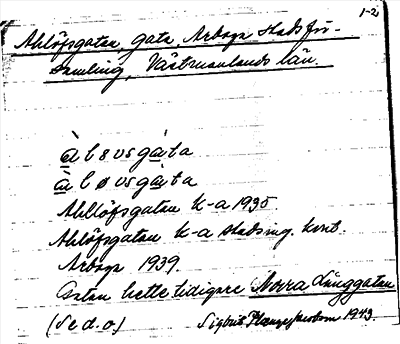 1-2
Ahlöfsgatan, gata Arboga stadsför-
samling, Västmanlands län.
àlövsgàta
àløvsgàta
Ahllöfsgatan k-a 1935.
Ahlöfsgatan k-a stadsing. kont.
Arboga 1939.
Gatan hette tidigare Norra Långgatan
(se d. o.) Sigbrit 1943.